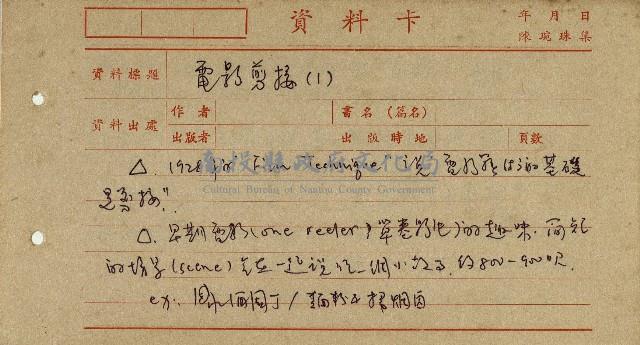 資料卡
年 月 日
陳琬珠集
資料標題
電影剪接(1)
資料出處
作者
書名(篇名)
出版者
出版時地
頁數
△. 1928 Film Technique 說電影藝術的基礎
是剪接"
南投縣政府文化局
Cultural Bureau of Nantou County Government
△. 早期電影(one reeler,單卷影片)的趣味,簡短
的場景(scene) 在一起說 一個小故事,約800-900呎.
ex. 園丁/麵粉 掃烟囪